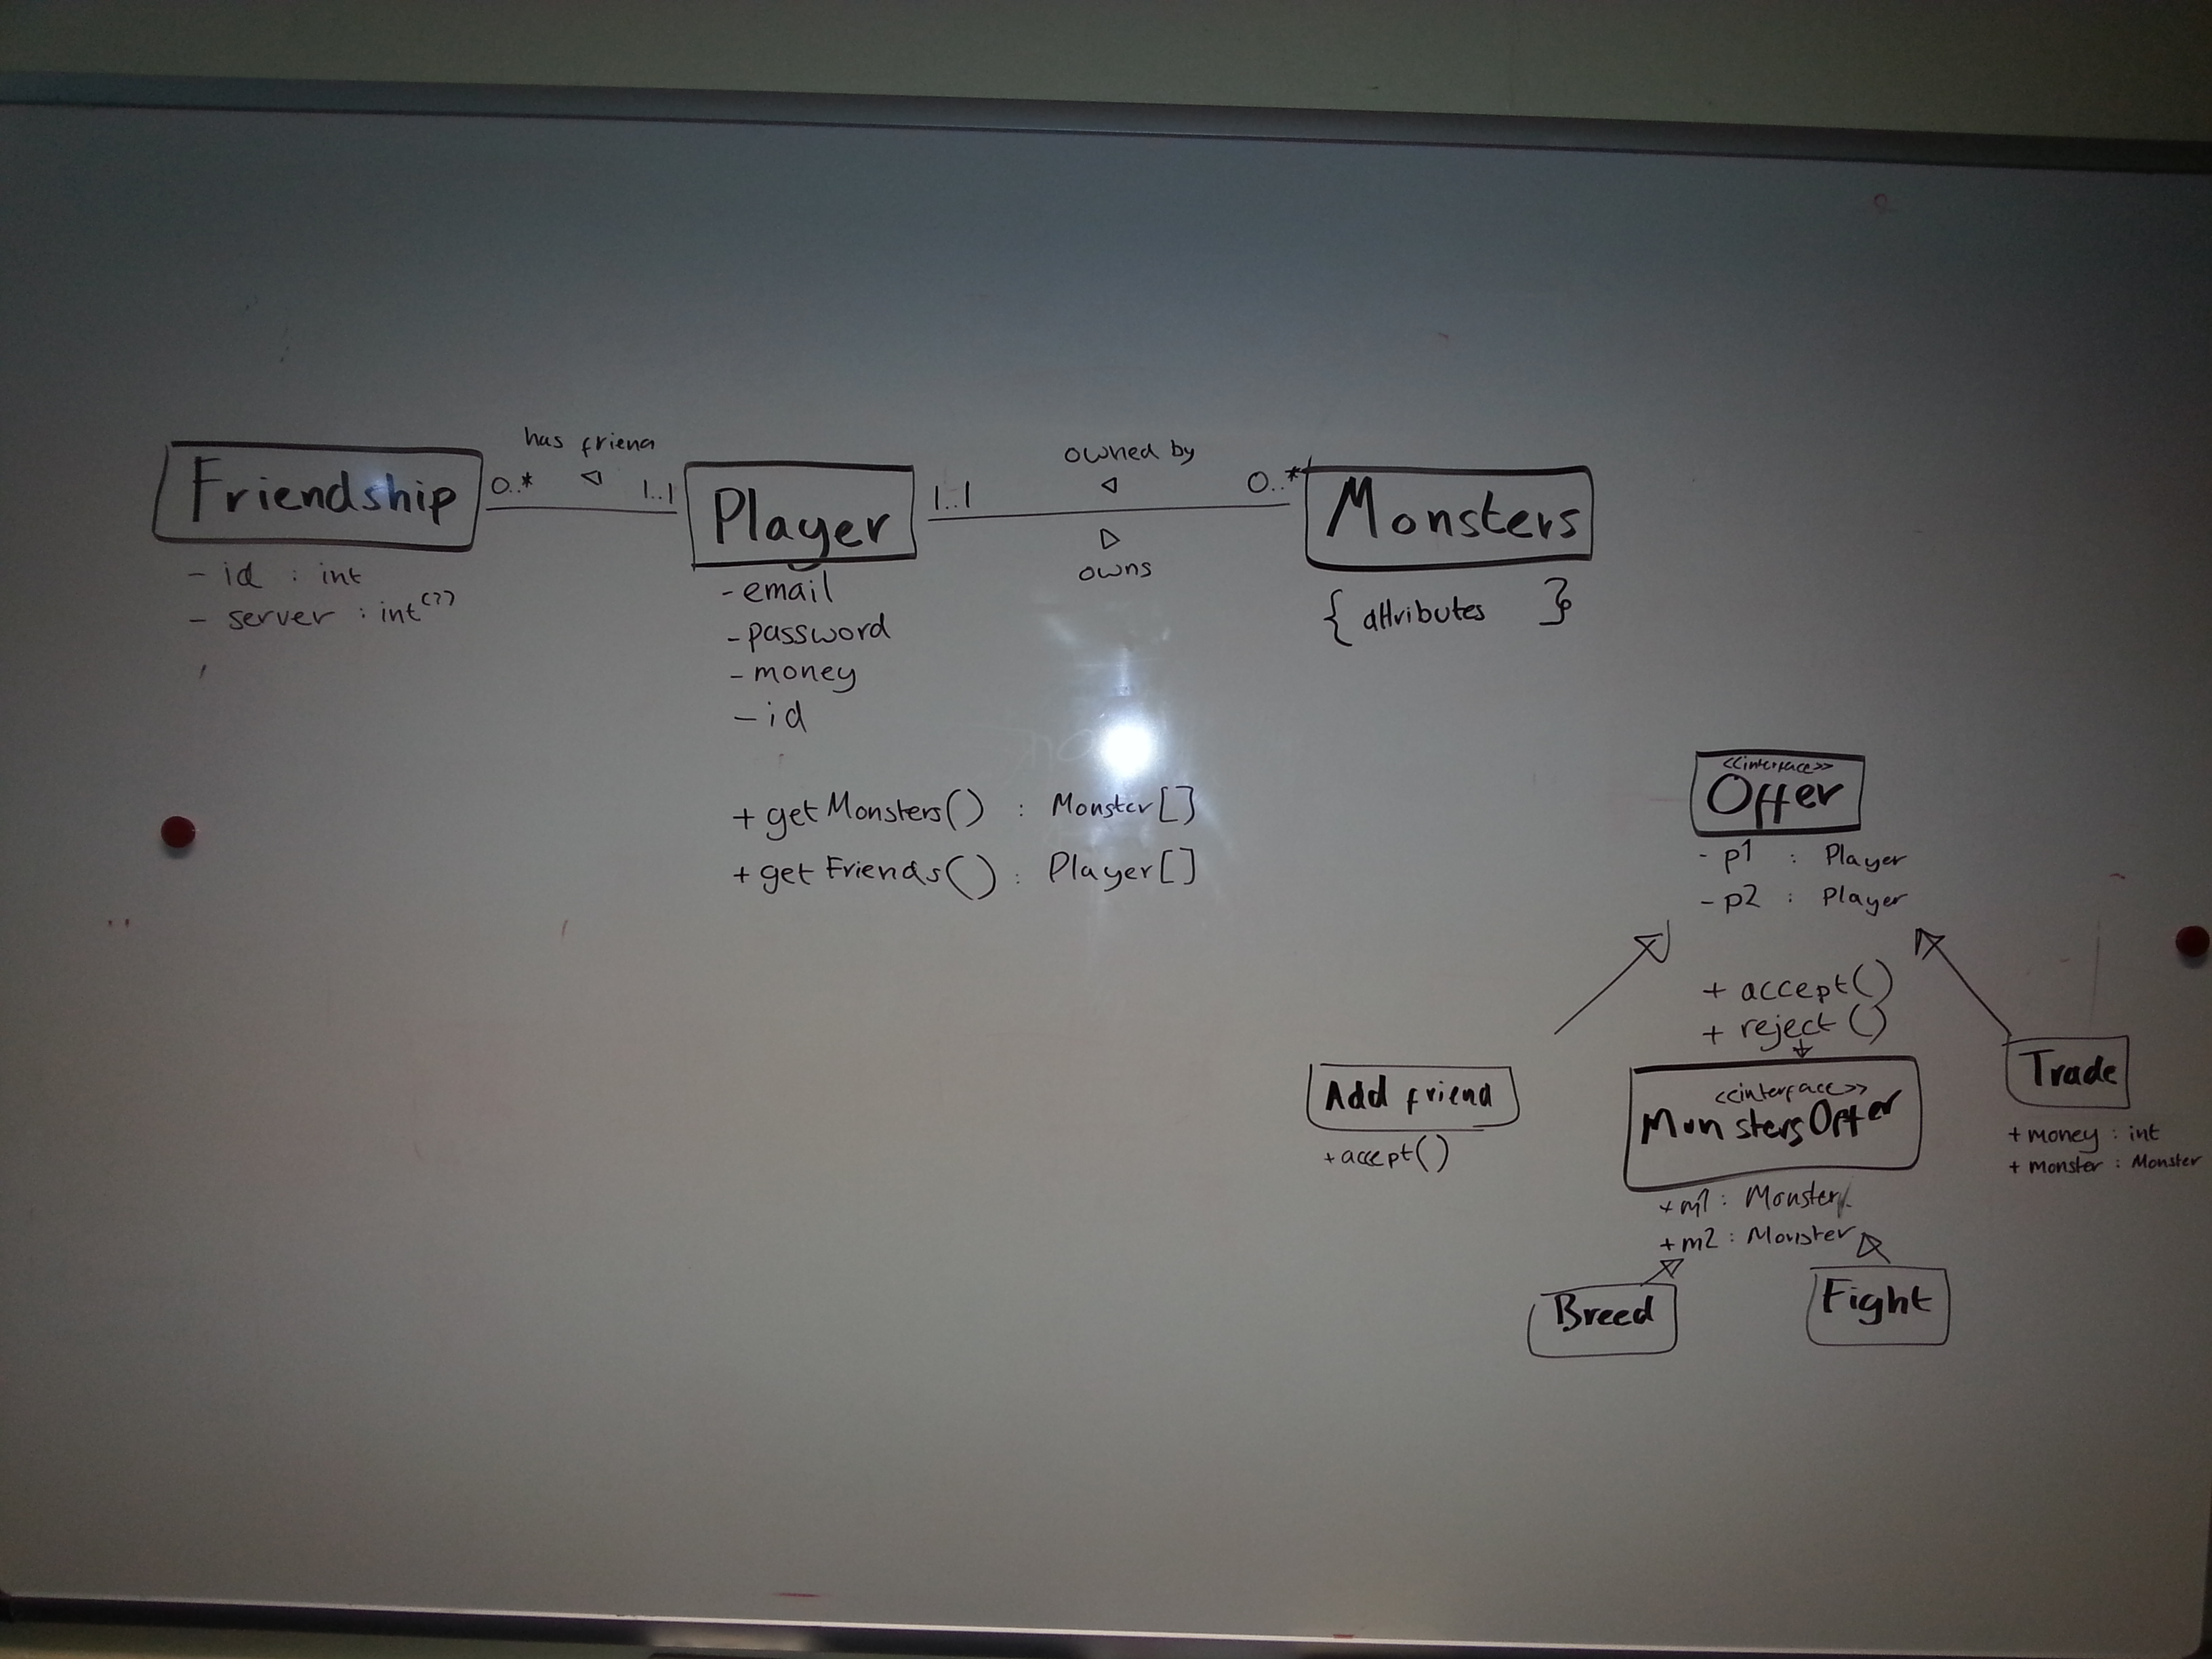 has friend
0..*
1..1
Friendship
- id : int
- server : int (??)
Player
- email
- password
- money
- id
+ getMonsters() : Monster[]
+ getFriends() : Player[]
owned by
1..1
0..*
owns
Monsters
{ attributes }
<<interface>>
Offer
- p1 : Player
- p2 : Player
+ accept()
+ reject()
Add friend
+accept()
<<interface>>
MonstersOffer
+ m1 : Monster
+ m2 : Monster
Trade
+ money : int
+ monster : Monster
Breed
Fight